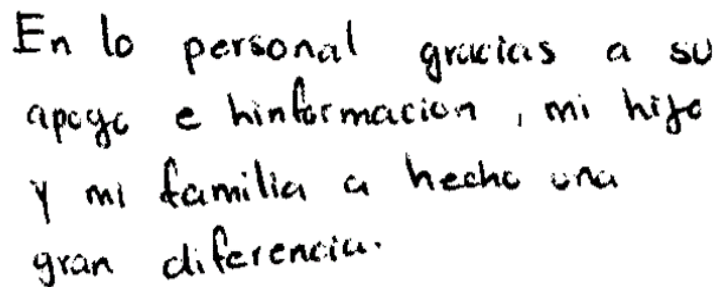 En lo personal gracias a su
apoyo e hinformacion, mi hijo
y mi familia a hecho una
gran diferencia.